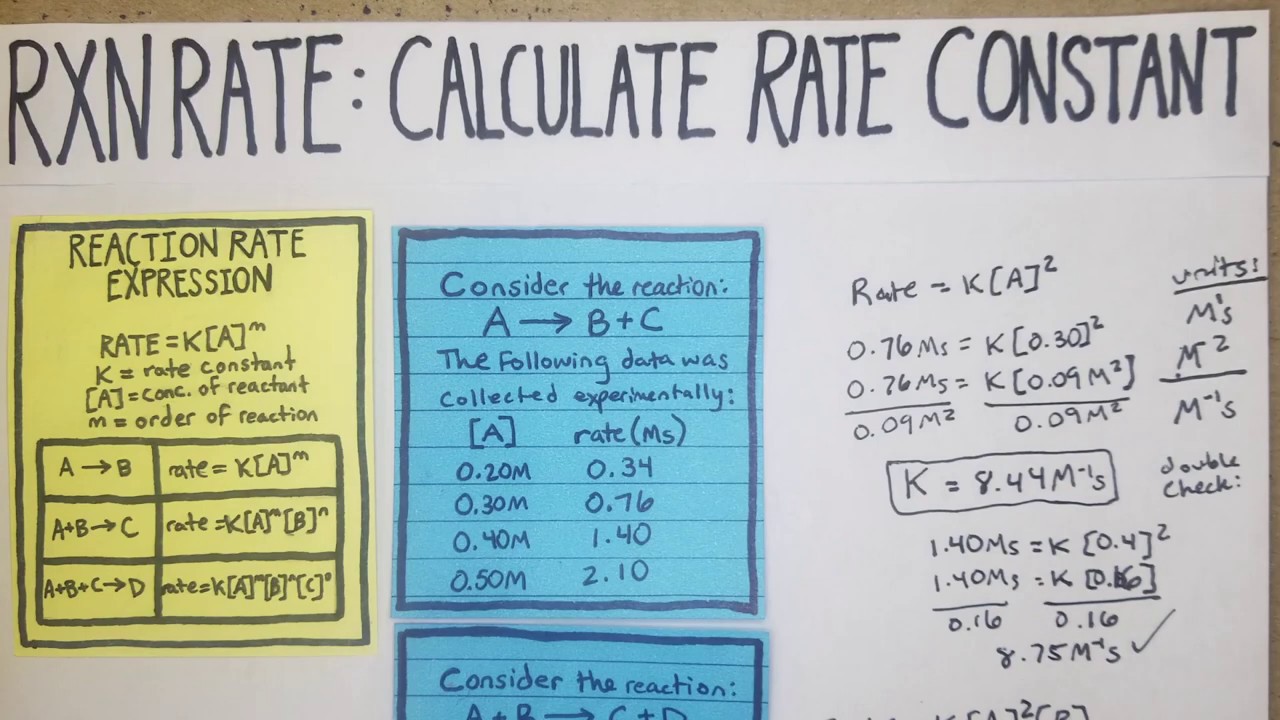 RXN RATE: CALCULATE RATE CONSTANT
REACTION RATE
EXPRESSION
RATE=K[A]ᵐ
K = rate constant
[A]=conc. of reactant
m = order of reaction
A → B rate= K[A]ᵐ
A+B→C rate=K[A]ᵐ[B]ⁿ
A+B+C→D rate=K[A]ᵐ[B]ⁿ[C]°
Consider the reaction:
A → B+C
The Following data was
collected experimentally:
[A] rate(Ms)
0.20M 0.34
0.30M 0.76
0.40M 1.40
0.50M 2.10
Consider the reaction:
A+B → C+D
Rate = K[A]²
0.76Ms = K[0.30]²
0.76Ms = K[0.09M²]
0.09M² 0.09M²
K = 8.44M⁻¹s
units:
M¹s
M²
M⁻¹s
double
check:
1.40Ms = K[0.4]²
1.40Ms = K[0.16]
0.16 0.16
8.75M⁻¹s ✓
K[A]²[B]